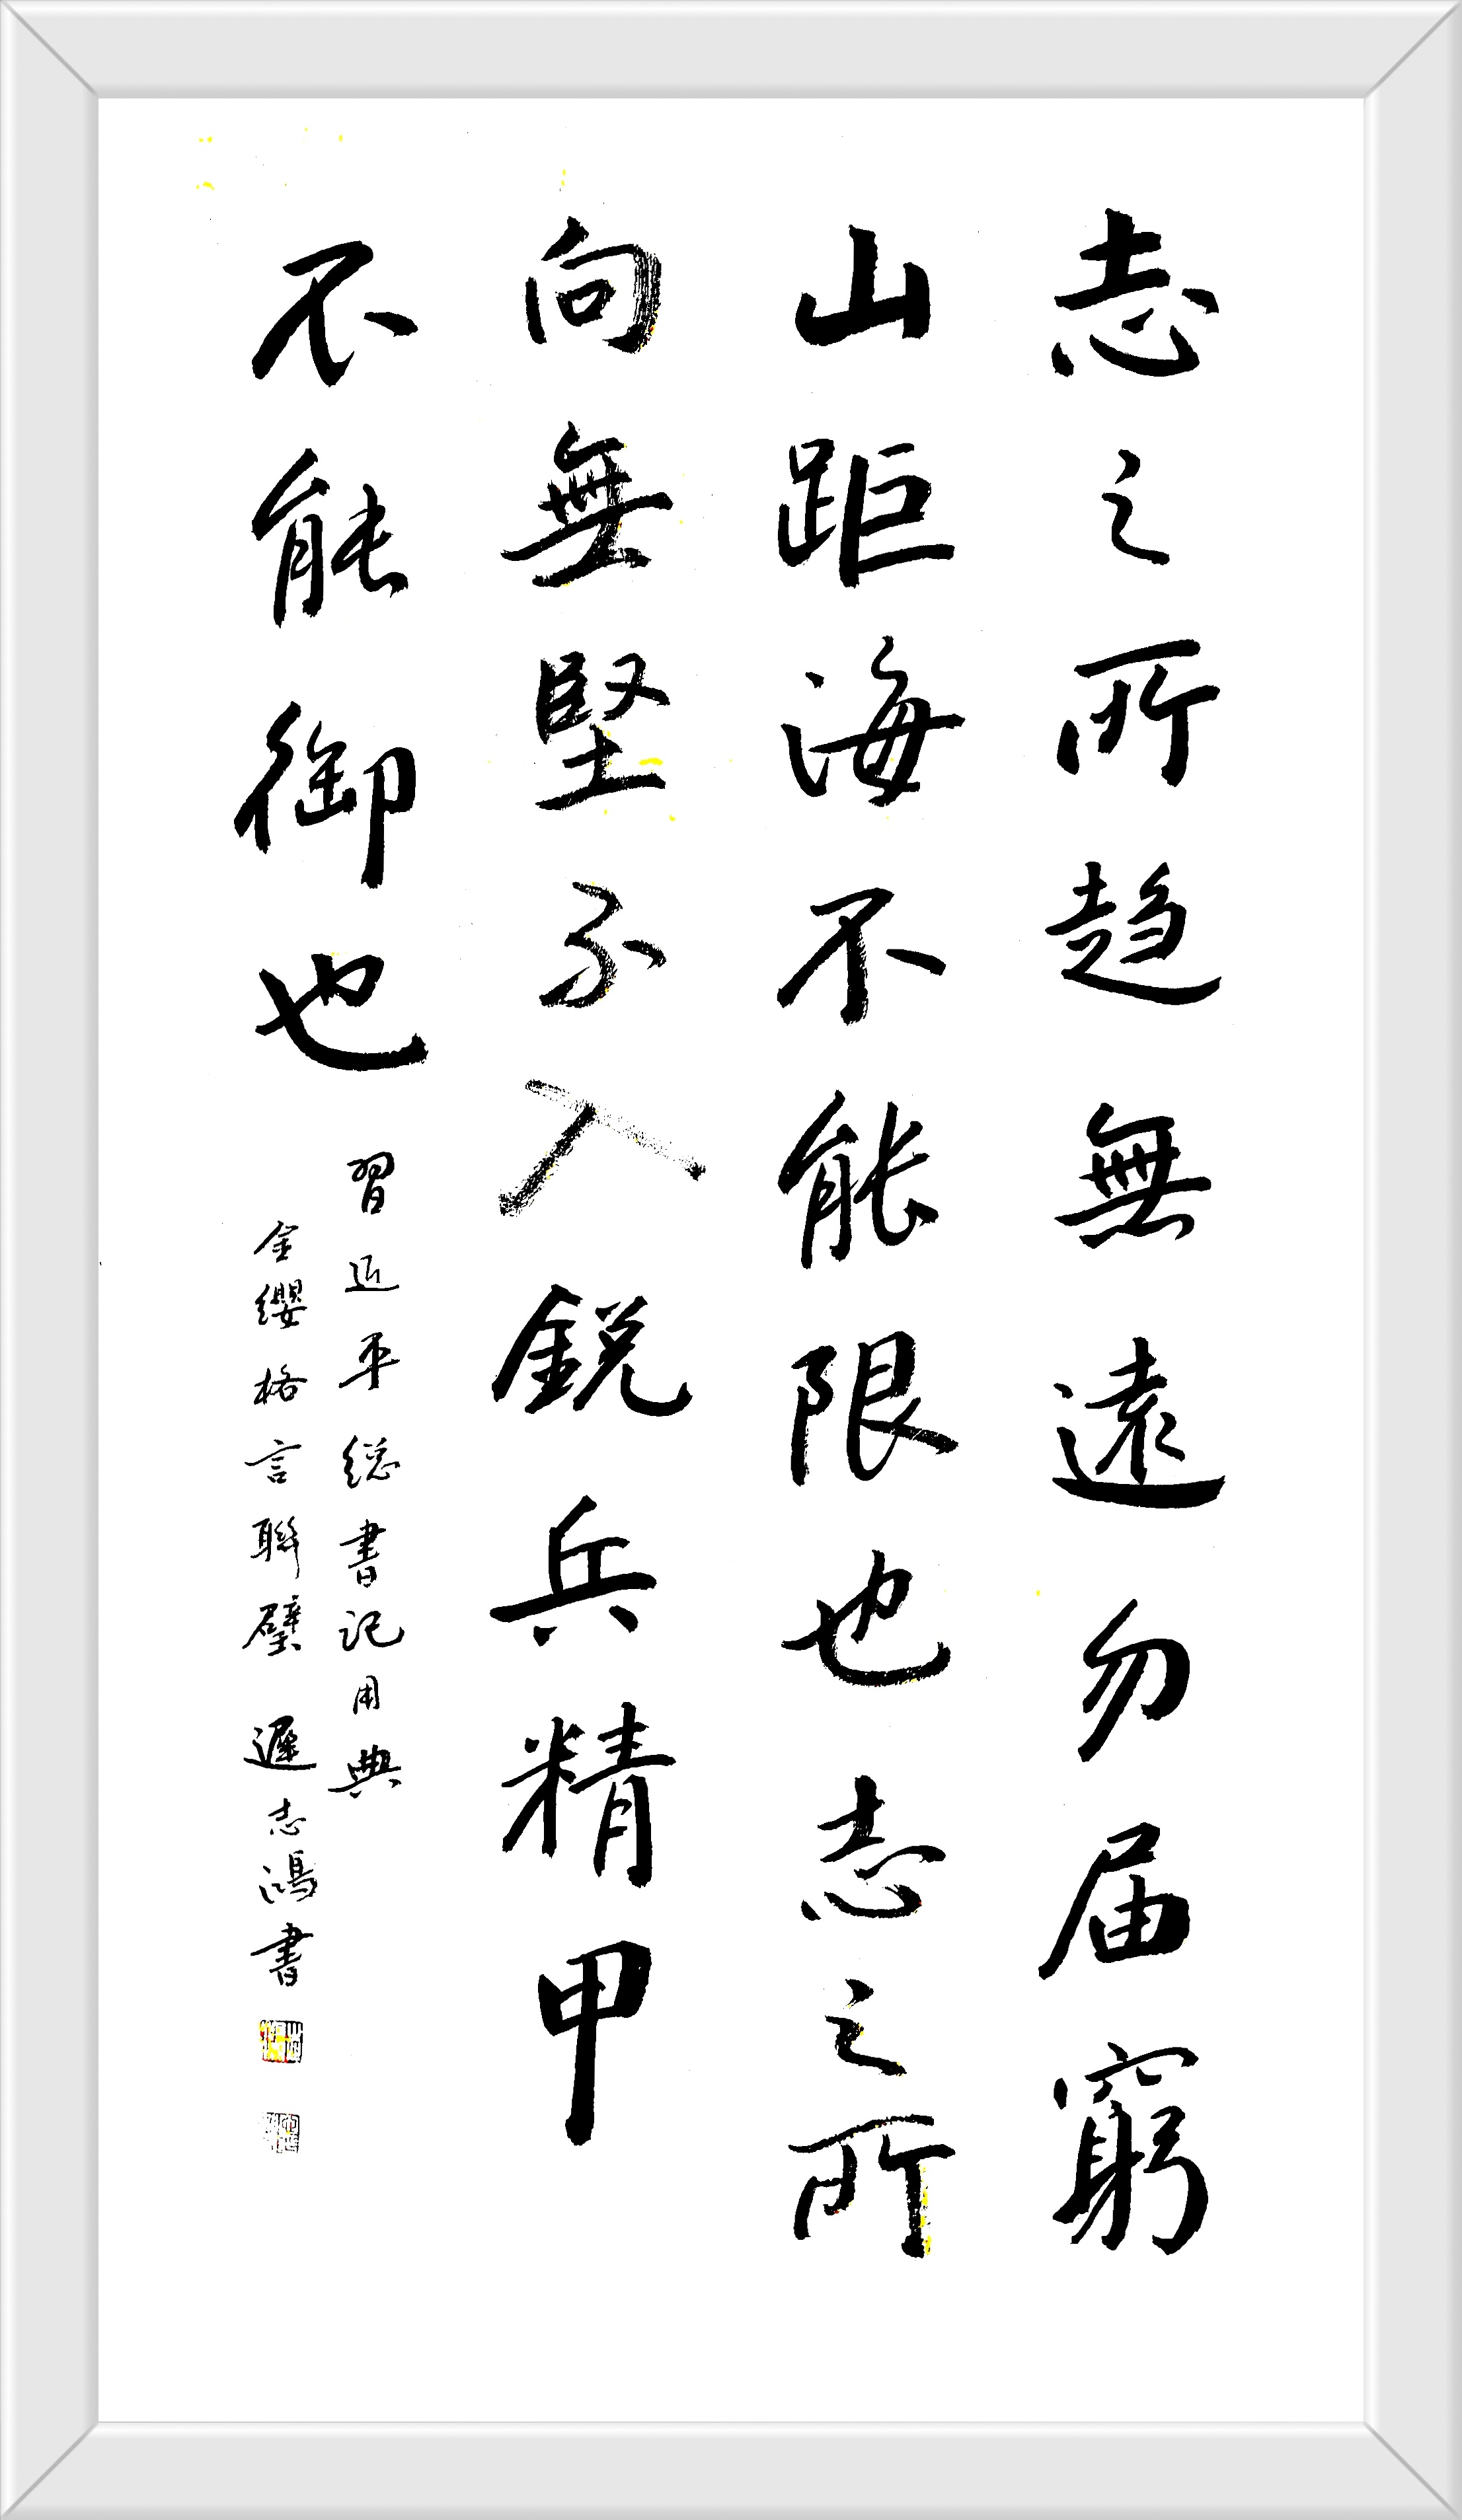 志之所趋無遠勿届窮
山距海不能限也志之所
向無堅不入鋭兵精甲
不能御也
習近平総書記用典
金纓格言聯璧 遲志鴻書